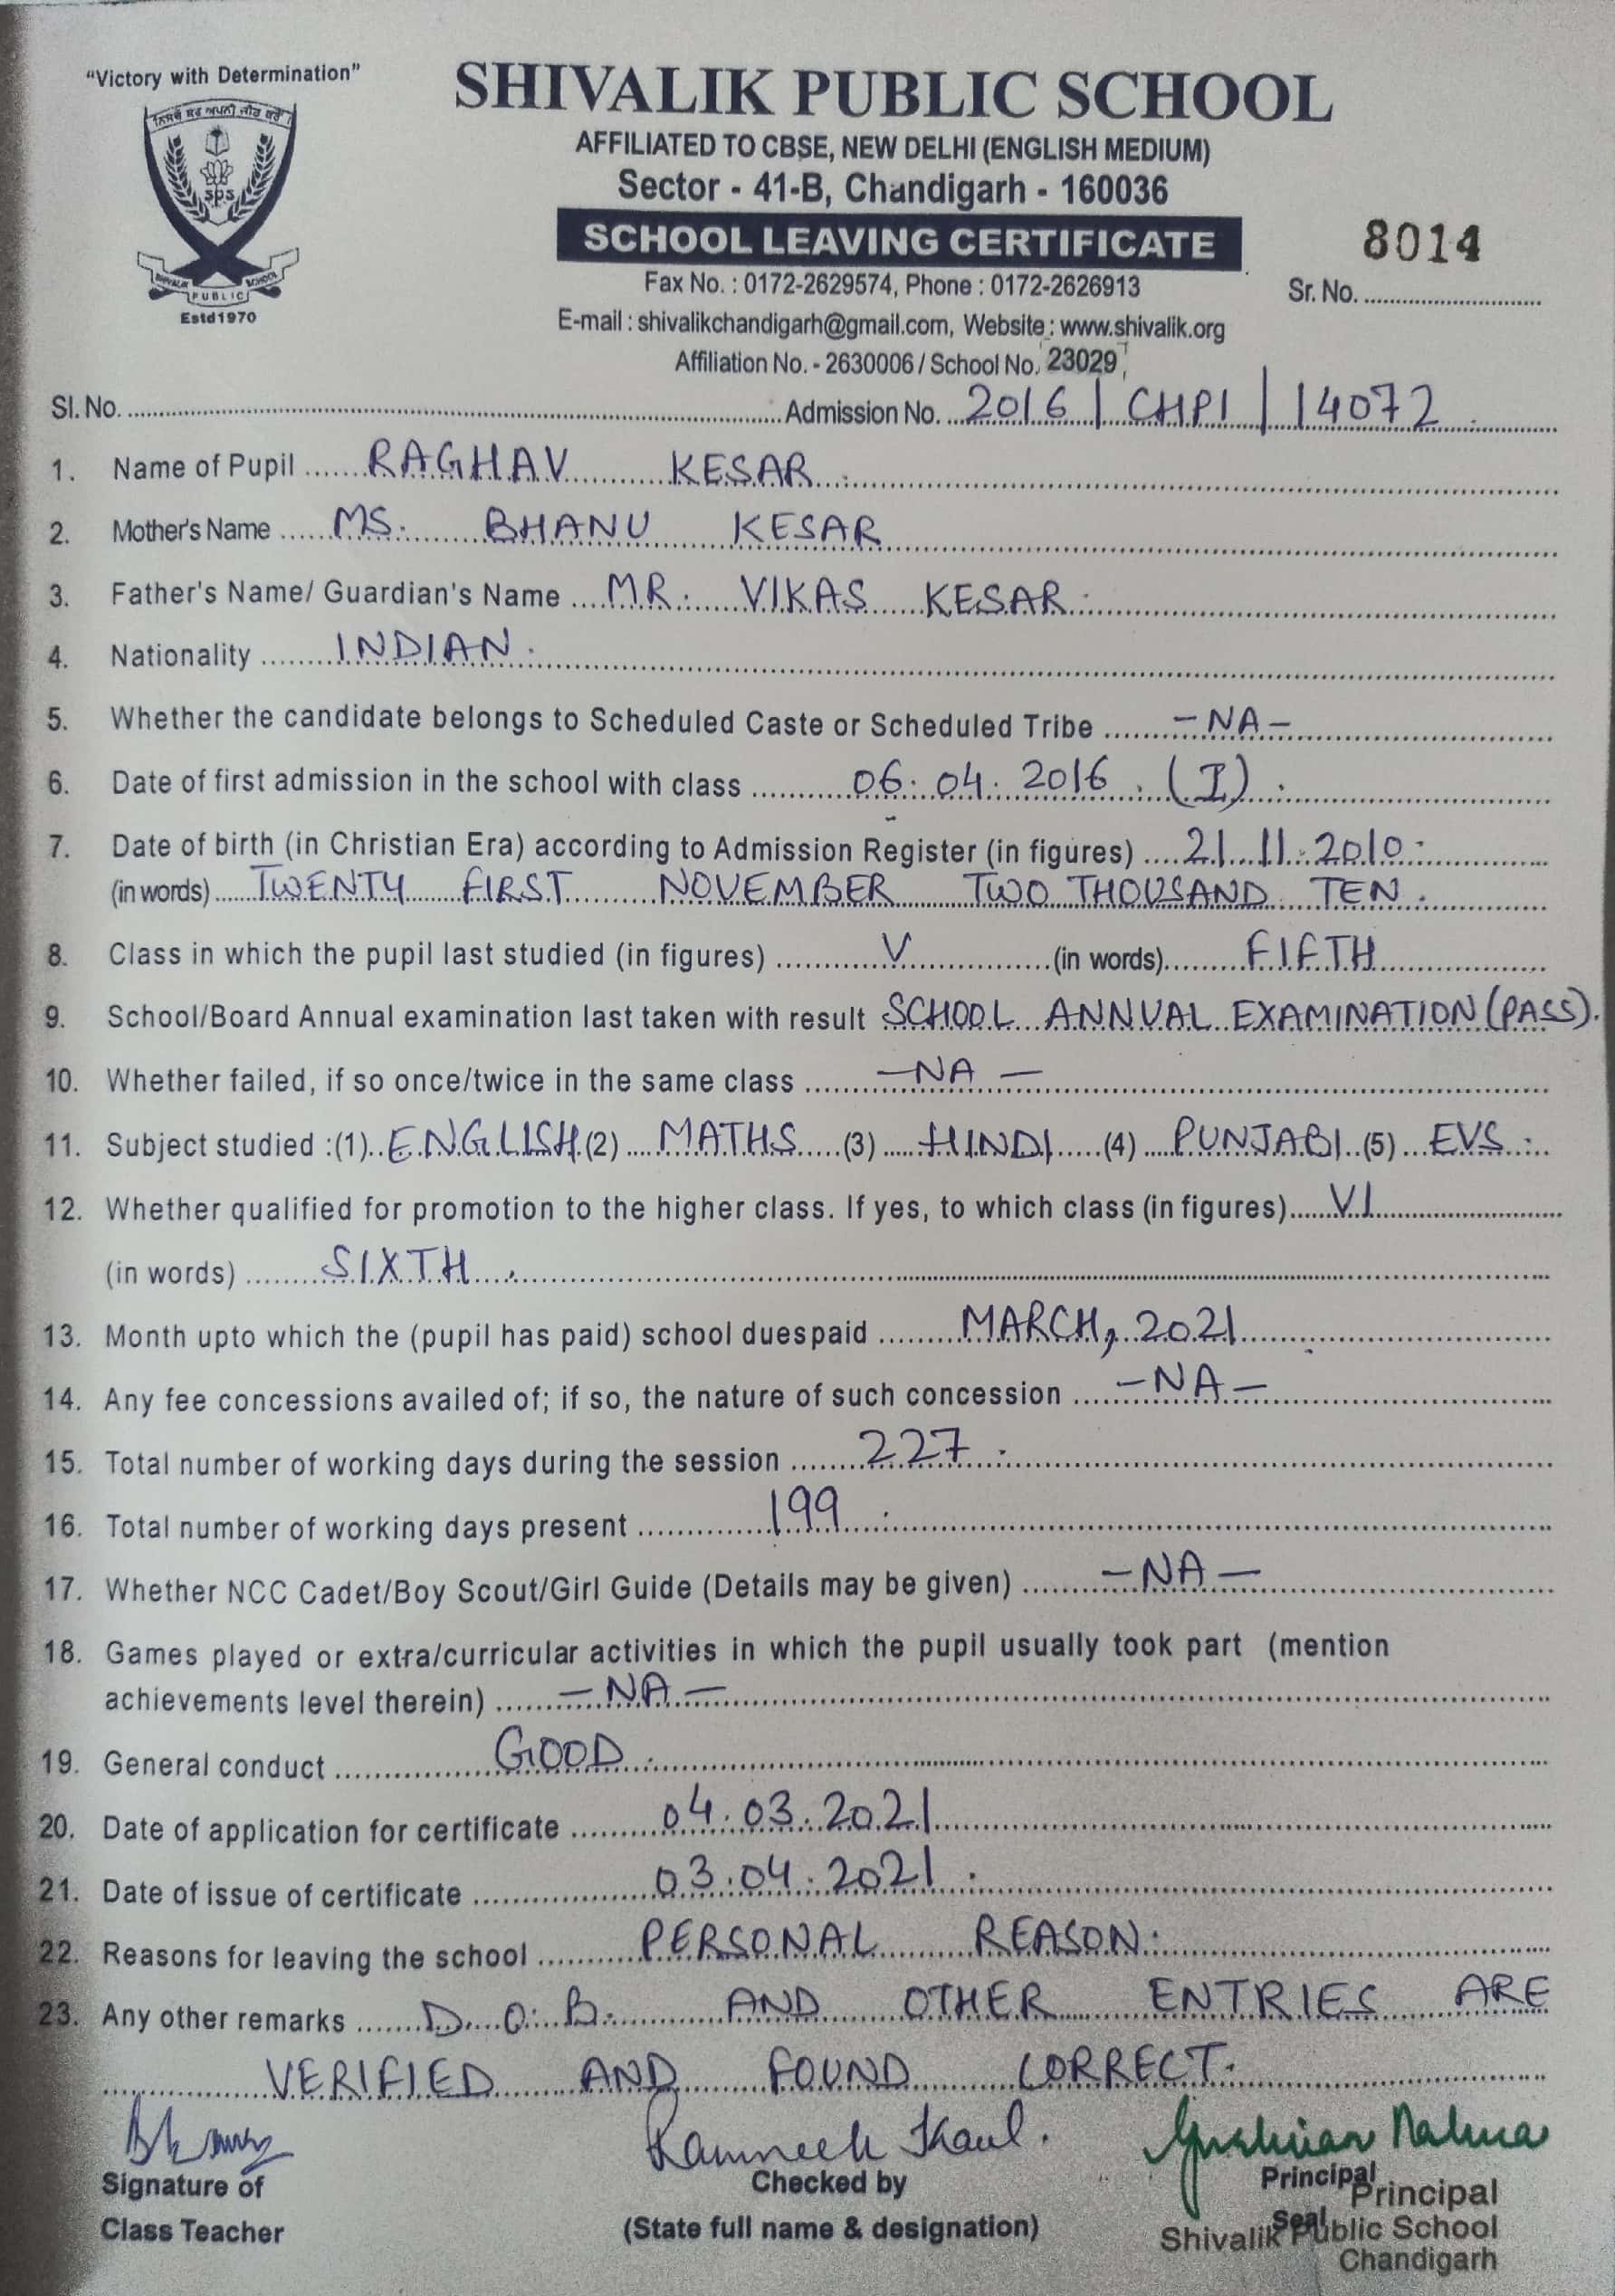 "Victory with Determination"
SHIVALIK PUBLIC SCHOOL
AFFILIATED TO CBSE, NEW DELHI (ENGLISH MEDIUM)
Sector - 41-B, Chandigarh - 160036
SCHOOL LEAVING CERTIFICATE
8014
sps
SHIVALIK PUBLIC SCHOOL
Estd 1970
Fax No. : 0172-2629574, Phone : 0172-2626913
Sr. No. ..............
E-mail : shivalikchandigarh@gmail.com, Website : www.shivalik.org
Affiliation No. - 2630006 / School No. 23029
Sl. No. .............. Admission No. 2016 | CHPI | 14072
1. Name of Pupil RAGHAV KESAR
2. Mother's Name MS. BHANU KESAR
3. Father's Name/ Guardian's Name MR. VIKAS KESAR.
4. Nationality INDIAN.
5. Whether the candidate belongs to Scheduled Caste or Scheduled Tribe -NA-
6. Date of first admission in the school with class 06.04.2016. (I).
7. Date of birth (in Christian Era) according to Admission Register (in figures) 21.11.2010.
(in words) TWENTY FIRST NOVEMBER TWO THOUSAND TEN.
8. Class in which the pupil last studied (in figures) V (in words) FIFTH
9. School/Board Annual examination last taken with result SCHOOL ANNUAL EXAMINATION (PASS).
10. Whether failed, if so once/twice in the same class -NA-
11. Subject studied :(1) ENGLISH (2) MATHS (3) HINDI (4) PUNJABI (5) EVS.
12. Whether qualified for promotion to the higher class. If yes, to which class (in figures) VI
(in words) SIXTH.
13. Month upto which the (pupil has paid) school duespaid MARCH, 2021
14. Any fee concessions availed of; if so, the nature of such concession -NA-
15. Total number of working days during the session 227.
16. Total number of working days present 199.
17. Whether NCC Cadet/Boy Scout/Girl Guide (Details may be given) -NA-
18. Games played or extra/curricular activities in which the pupil usually took part (mention
achievements level therein) -NA-
19. General conduct GOOD.
20. Date of application for certificate 04.03.2021
21. Date of issue of certificate 03.04.2021.
22. Reasons for leaving the school PERSONAL REASON.
23. Any other remarks D.O.B. AND OTHER ENTRIES ARE
VERIFIED AND FOUND CORRECT.
Ramneek Kaul.
Signature of
Class Teacher
Checked by
(State full name & designation)
Principal
Seal
Principal
Shivalik Public School
Chandigarh